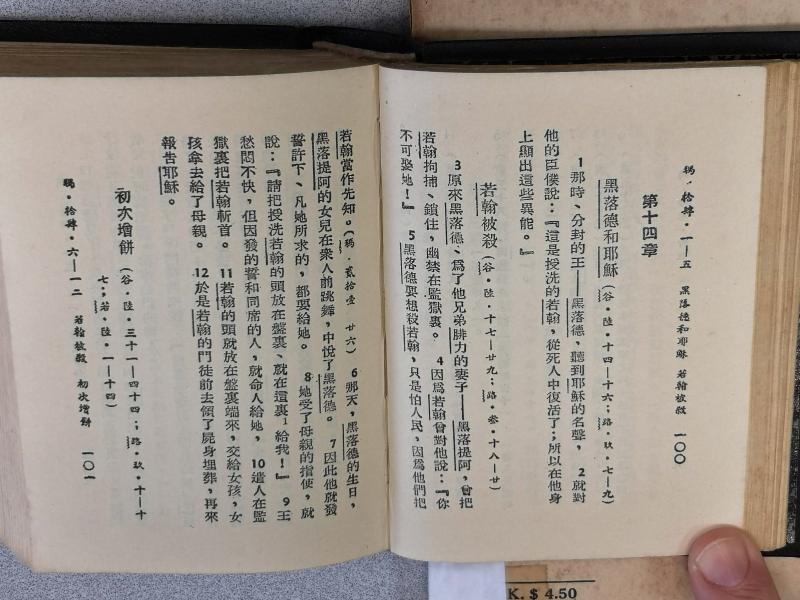 瑪·拾肆·一—五　黑落德和耶穌　若翰被殺　一〇〇
第十四章
黑落德和耶穌(谷·陸·十四—十六；路·玖·七—九)
1那時、分封的王——黑落德，聽到耶穌的名聲，　2就對
他的臣僕說：『這是授洗的若翰，從死人中復活了；所以在他身
上顯出這些異能。』
若翰被殺(谷·陸·十七—廿九；路·叁·十八—廿)
3原來黑落德、爲了他兄弟腓力的妻子——黑落提阿，曾把
若翰拘捕、鎖住，幽禁在監獄裏。　4因爲若翰曾對他說：『你
不可娶她！』　5黑落德要想殺若翰，只是怕人民，因爲他們把
若翰當作先知。(瑪·貳拾壹　廿六)　6那天，黑落德的生日，
黑落提阿的女兒在衆人前跳舞，中悅了黑落德。　7因此他就發
誓許下、凡她所求的，都要給她。　8她受了母親的指使，就
說：『請把授洗若翰的頭放在盤裏、就在這裏1給我！』　9王
愁悶不快，但因發的誓和同席的人，就命人給她，　10遣人在監
獄裏把若翰斬首。　11若翰的頭就放在盤裏端來，交給女孩，女
孩拿去給了母親。　12於是若翰的門徒前去領了屍身埋葬，再來
報告耶穌。
初次增餅(谷·陸·三十一—四十四；路·玖·十—十
七；若·陸·一—十四)
瑪·拾肆·六—一二　若翰被殺　初次增餅　一〇一
K. $ 4.50